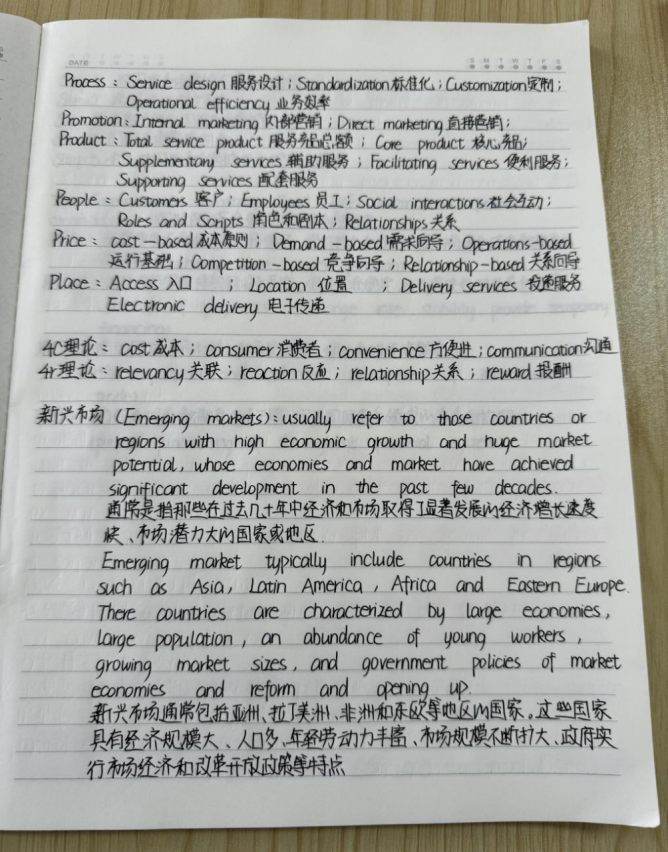 DATE
S M T W T F S
Process : Service design 服务设计 ; Standardization 标准化 ; Customization 定制 ;
Operational efficiency 业务效率
Promotion : Internal marketing 内部营销 ; Direct marketing 直接营销 ;
Product : Total service product 服务产品总额 ; Core product 核心产品 ;
Supplementary services 辅助服务 ; Facilitating services 便利服务 ;
Supporting services 配套服务
People : Customers 客户 ; Employees 员工 ; Social interactions 社会互动 ;
Roles and Scripts 角色和剧本 ; Relationships 关系
Price : cost-based 成本原则 ; Demand-based 需求导向 ; Operations-based
运行基础 ; Competition-based 竞争导向 ; Relationship-based 关系导向
Place : Access 入口 ; Location 位置 ; Delivery services 投递服务
Electronic delivery 电子传递
4C理论 : cost 成本 ; consumer 消费者 ; convenience 方便性 ; communication 沟通
4r理论 : relevancy 关联 ; reaction 反应 ; relationship 关系 ; reward 报酬
新兴市场 (Emerging markets) : usually refer to those countries or
regions with high economic growth and huge market
potential, whose economies and market have achieved
significant development in the past few decades.
通常是指那些在过去几十年中经济和市场取得了显著发展的经济增长速度
快、市场潜力大的国家或地区.
Emerging market typically include countries in regions
such as Asia, Latin America, Africa and Eastern Europe.
There countries are characterized by large economies,
large population, an abundance of young workers,
growing market sizes, and government policies of market
economies and reform and opening up.
新兴市场通常包括亚洲、拉丁美洲、非洲和东欧等地区的国家。这些国家
具有经济规模大、人口多、年轻劳动力丰富、市场规模不断扩大、政府实
行市场经济和改革开放政策等特点